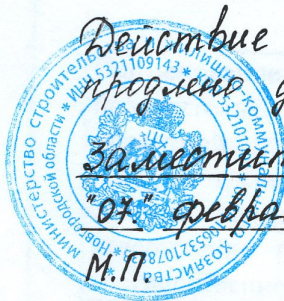 Действие
продлено д
Заместит
"07." февра
М.П.
Министерство строительс
Новгородской области * ИНН 5321109143 *
хозяйства